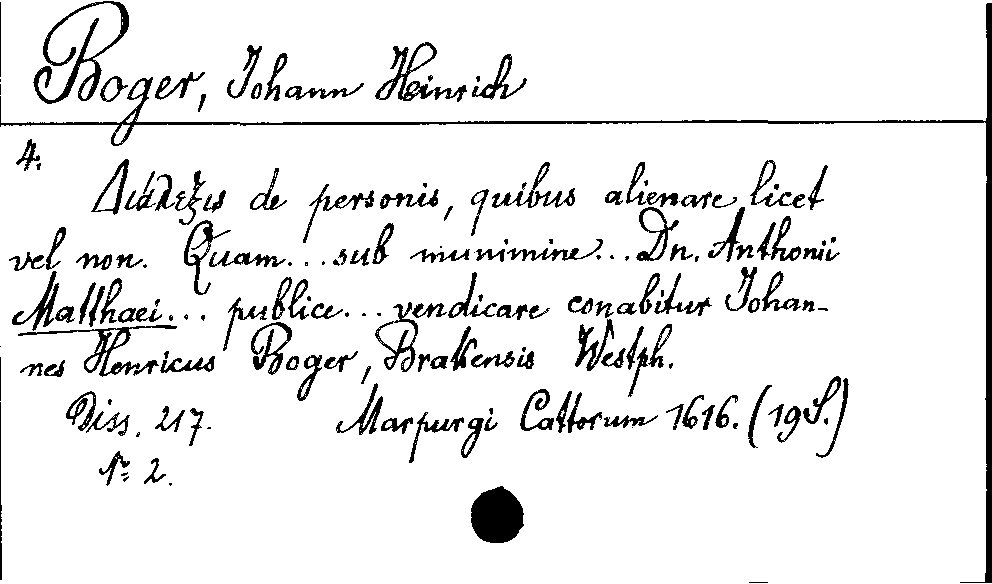 Boger, Johann Heinrich
4.
Διάλεξις de personis, quibus alienare licet
vel non. Quam... sub munimine... Dn. Anthonii
Matthaei... publice... vendicare conabitur Johan-
nes Henricus Boger, Brakensis Westph.
Diss. 217. Marpurgi Cattorum 1616. (19 S.)
2.